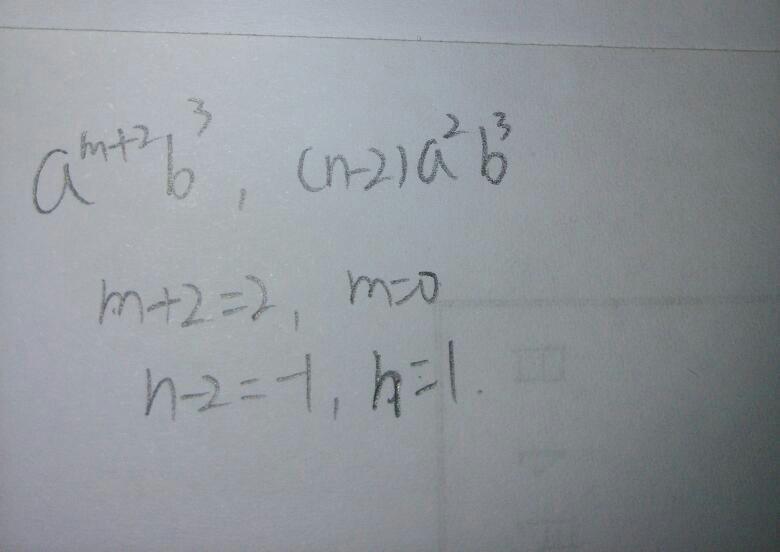 a^{m+2}b^3, (n-2)a^2b^3
m+2=2, m=0
n-2=-1, n=1.